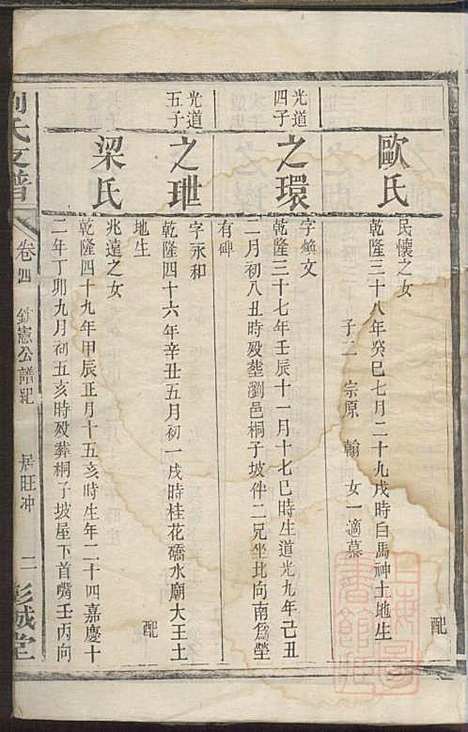 歐氏
民懷之女
乾隆三十八年癸巳七月二十九戌時白馬神土地生
子二 宗原 翰 女一適慕
配
光道四子
之環
字繞文
乾隆三十七年壬辰十一月十七巳時生道光九年己丑
二月初八丑時殁葬瀏邑桐子坡伴二兄坐北向南爲塋
有碑
光道五子
之玭
字永和
乾隆四十六年辛丑五月初一戌時桂花礄水廟大王土
地生
配
梁氏
兆達之女
乾隆四十九年甲辰正月十五亥時生年二十四嘉慶十
二年丁卯九月初五亥時殁葬桐子坡屋下首嘴壬丙向
劉氏支譜
卷四
憲公譜紀
居旺冲
二
彭城堂